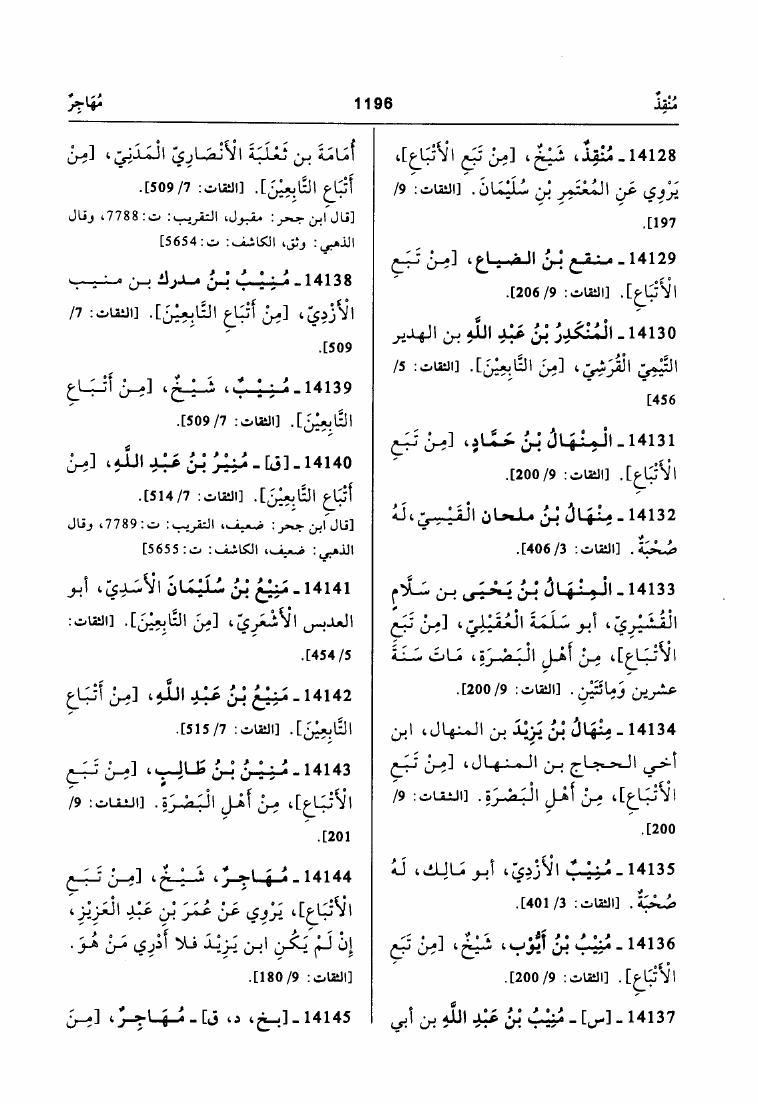 مُنْقِذٌ
1196
مُهَاجِرٌ
14128 ـ مُنْقِذٌ، شَيْخٌ، [مِنْ تَبَعِ الأَتْبَاعِ]،
يَرْوِي عَنِ المُعْتَمِرِ بْنِ سُلَيْمَانَ. [الثقات: 9/
197].
14129 ـ منقع بْنُ الضياع، [مِنْ تَبَعِ
الأَتْبَاعِ]. [الثقات: 9/ 206].
14130 ـ الْمُنْكَدِرُ بْنُ عَبْدِ اللَّهِ بن الهدير
التَّيْمِيّ الْقُرَشِيّ، [مِنَ التَّابِعِيْنَ]. [الثقات: 5/
456]
14131 ـ الْمِنْهَالُ بْنُ حَمَّادٍ، [مِنْ تَبَعِ
الأَتْبَاعِ]. [الثقات: 9/ 200].
14132 ـ مِنْهَالُ بْنُ ملحان الْقَيْسِيّ، لَهُ
صُحْبَةٌ. [الثقات: 3/ 406].
14133 ـ الْمِنْهَالُ بْنُ يَحْيَى بن سَلَّامٍ
الْقُشَيْرِيّ، أبو سَلَمَةَ الْعُقَيْلِيّ، [مِنْ تَبَعِ
الأَتْبَاعِ]، مِنْ أَهْلِ الْبَصْرَةِ، مَاتَ سَنَةَ
عشرين وَمِائَتَيْنِ. [الثقات: 9/ 200].
14134 ـ مِنْهَالُ بْنُ يَزِيْدَ بن المنهال، ابن
أخي الحجاج بن المنهال، [مِنْ تَبَعِ
الأَتْبَاعِ]، مِنْ أَهْلِ الْبَصْرَةِ. [الثقات: 9/
200].
14135 ـ مُنِيْبٌ الأَزْدِيّ، أبو مَالِك، لَهُ
صُحْبَةٌ. [الثقات: 3/ 401].
14136 ـ مُنِيْبُ بْنُ أَيُّوْب، شَيْخٌ، [مِنْ تَبَعِ
الأَتْبَاعِ]. [الثقات: 9/ 200].
14137 ـ [س] ـ مُنِيْبُ بْنُ عَبْدِ اللَّهِ بن أبي
أُمَامَةَ بن ثَعْلَبَةَ الأَنْصَارِيّ الْمَدَنِيّ، [مِنْ
أَتْبَاعِ التَّابِعِيْنَ]. [الثقات: 7/ 509].
[قال ابن حجر: مقبول، التقريب: ت: 7788، وقال
الذهبي: وثق، الكاشف: ت: 5654]
14138 ـ مُنِيْبُ بْنُ مدرك بن منيب
الأَزْدِيّ، [مِنْ أَتْبَاعِ التَّابِعِيْنَ]. [الثقات: 7/
509].
14139 ـ مُنِيْبٌ، شَيْخٌ، [مِنْ أَتْبَاعِ
التَّابِعِيْنَ]. [الثقات: 7/ 509].
14140 ـ [ق] ـ مُنِيْرُ بْنُ عَبْدِ اللَّهِ، [مِنْ
أَتْبَاعِ التَّابِعِيْنَ]. [الثقات: 7/ 514].
[قال ابن حجر: ضعيف، التقريب: ت: 7789، وقال
الذهبي: ضعيف، الكاشف: ت: 5655]
14141 ـ مَنِيْعُ بْنُ سُلَيْمَانَ الأَسَدِيّ، أبو
العدبس الأَشْعَرِيّ، [مِنَ التَّابِعِيْنَ]. [الثقات:
5/ 454].
14142 ـ مَنِيْعُ بْنُ عَبْدِ اللَّهِ، [مِنْ أَتْبَاعِ
التَّابِعِيْنَ]. [الثقات: 7/ 515].
14143 ـ مُنَيْنُ بْنُ طَالِبٍ، [مِنْ تَبَعِ
الأَتْبَاعِ]، مِنْ أَهْلِ الْبَصْرَةِ. [الثقات: 9/
201].
14144 ـ مُهَاجِرٌ، شَيْخٌ، [مِنْ تَبَعِ
الأَتْبَاعِ]، يَرْوِي عَنْ عُمَرَ بْنِ عَبْدِ الْعَزِيْزِ،
إِنْ لَمْ يَكُنِ ابن يَزِيْدَ فلا أَدْرِي مَنْ هُوَ.
[الثقات: 9/ 180].
14145 ـ [بخ، د، ق] ـ مُهَاجِرٌ، [مِنَ